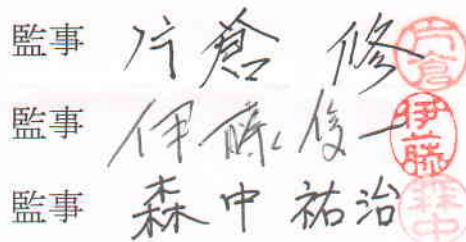 監事 片倉 修 片倉
監事 伊藤 俊一 伊藤
監事 森中 祐治 森中